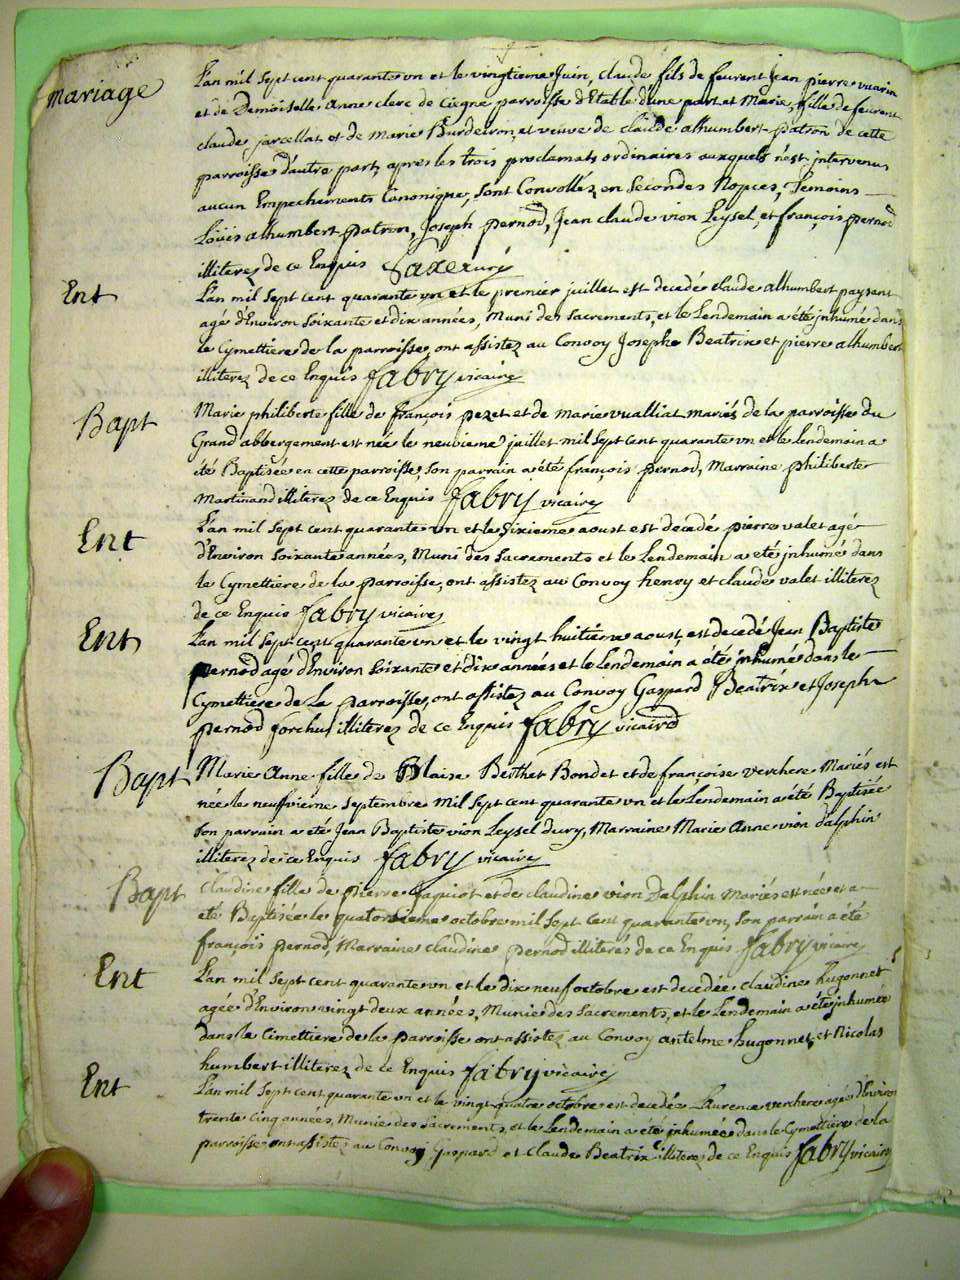 Mariage
L'an mil sept cent quarante un et le vingtieme Juin, claude fils de feurent Jean pierre vuarin
et de Demoiselle Anne clerc de Ciegne parroisse d'Etable d'une part et Marie, fille de feurent
claude jarcellat et de Marie Burdeiron, et veuve de claude alhumbert patron de cette
parroisse d'autre part, apres les trois proclamats ordinaires auxquels n'est jntervenu
aucun Empechements Canonique, sont Convollés en Secondes Nopces, Temoins
Loüis alhumbert patron, Joseph pernod, Jean claude vion Leysel, et françois pernod
illiterez de ce Enquis Saxe curé
Ent
L'an mil sept cent quarante un et le premier juillet est decedé claude alhumbert paysant
agé d'Environ soixante et dix années, Muni des sacrements, et le Lendemain a été jnhumé dans
le Cymettiere de la parroisse, ont assistez au Convoy Josephe Beatrix et pierre alhumbert
illiterez de ce Enquis fabry vicaire
Bapt
Marie philiberte fille de françois pezet et de marie vualliat mariés de la parroisse du
Grand abbergement est née le neuvieme juillet mil sept cent quarante un et le lendemain a
été Baptisée en cette parroisse, son parrain a été françois pernod, Marraine philiberte
Martinand illiterez de ce Enquis fabry vicaire
Ent
L'an mil sept cent quarante un et le sixieme aoust est decedé pierre valet agé
d'Environ soixante années, Muni des sacrements et le Lendemain a été jnhumé dans
le Cymettiere de la parroisse, ont assistez au Convoy henry et claude valet illiterez
de ce Enquis fabry vicaire
Ent
L'an mil sept cent quarante un et le vingt huitieme aoust, est decedé Jean Baptiste
pernod agé d'Environ soixante et dix années et le lendemain a été jnhumé dans le
Cymettiere de La parroisse, ont assistez au Convoy Gaspard Beatrix et Joseph
pernod forchu illiterez de ce Enquis fabry vicaire
Bapt
Marie Anne fille de Blaise Berthet Bondet et de françoise verchere Mariés est
née le neufvieme septembre Mil sept cent quarante un et le Lendemain a été Baptisée
son parrain a été Jean Baptiste vion Leysel dury, Marraine Marie Anne vion dalphin
illiterez de ce Enquis fabry vicaire
Bapt
Claudine fille de pierre Japiot et de claudine vion Dalphin Mariés est née et a
été Baptisée le quatorzieme octobre mil sept cent quarante un, son parrain a été
françois pernod, Marraine claudine pernod illiterés de ce Enquis fabry vicaire
Ent
L'an mil sept cent quarante un et le dix neuf octobre est decedée claudine hugonnet
agée d'Environ vingt deux années, Munie des sacrements, et le Lendemain a été jnhumée
dans le Cimettiere de la parroisse ont assistez au Convoy antelme hugonnet, et Nicolas
humbert illiterez de ce Enquis fabry vicaire
Ent
L'an mil sept cent quarante un et le vingt quatre octobre est decedée Laurence verchere agée d'Environ
trente cinq années, Munie des sacrements, et le Lendemain a été jnhumée dans le Cymettiere de la
parroisse ont assistez au Convoy Gaspard et Claude Beatrix illiterez de ce Enquis fabry vicaire